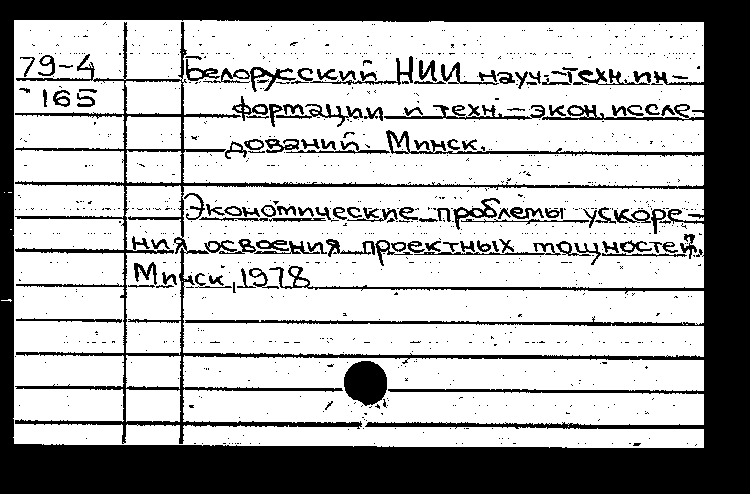 79-4 Белорусский НИИ науч.-техн. ин-
165 формации и техн.-экон. иссле-
дований. Минск.
Экономические проблемы ускоре-
ния освоения проектных мощностей.
Минск, 1978